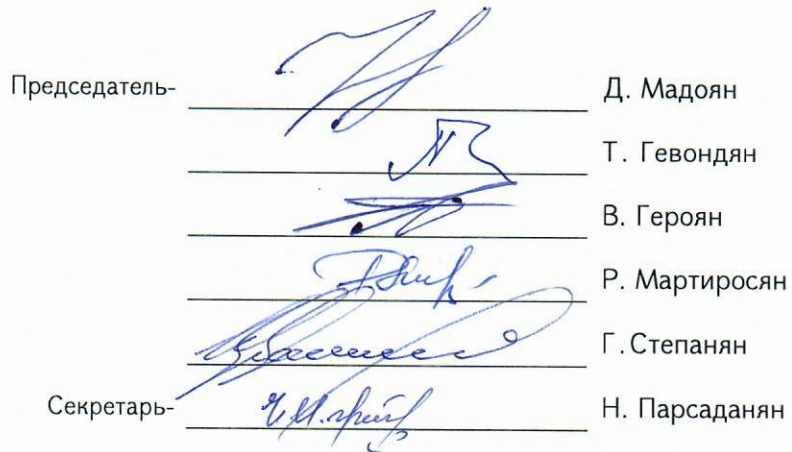 Председатель- Д. Мадоян
Т. Гевондян
В. Героян
Р. Мартиросян
Г. Степанян
Секретарь- Н. Парсаданян